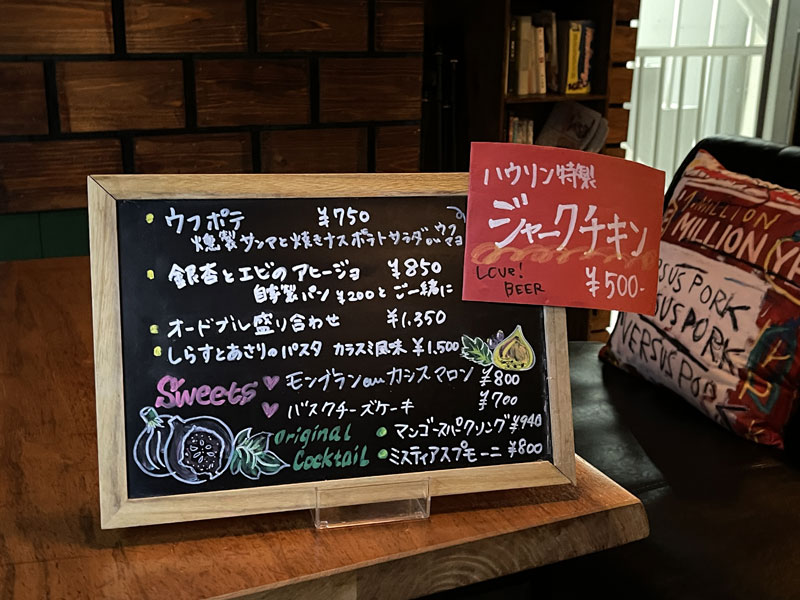 ウフポテ ¥750
燻製サンマと焼きナスポテトサラダ au ウフマヨ
銀杏とエビのアヒージョ ¥850
自家製パン ¥200とご一緒に
オードブル盛り合わせ ¥1.350
しらすとあさりのパスタ カラスミ風味 ¥1,500
Sweets モンブラン au カシスマロン ¥800
バスクチーズケーキ ¥700
Original Cocktail
マンゴースパークリング ¥940
ミスティアスプモーニ ¥800
ハウリン特製
ジャークチキン
Love! BEER
¥500-
MILLION
MILLION
VERSUS PORK
VERSUS PORK